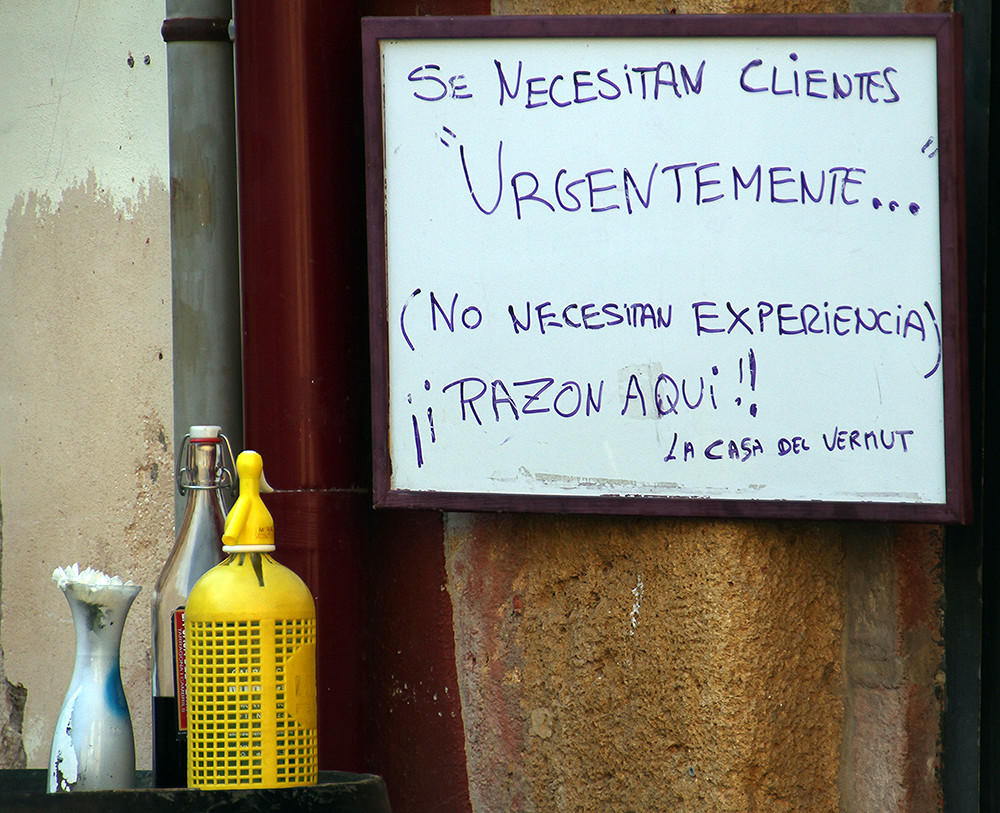 SE NECESiTAN CLiENTES
"URGENTEMENTE..."
(NO NECESITAN EXPERiENCiA)
¡¡RAZON AQUi!!
LA CASA DEL VERMUT